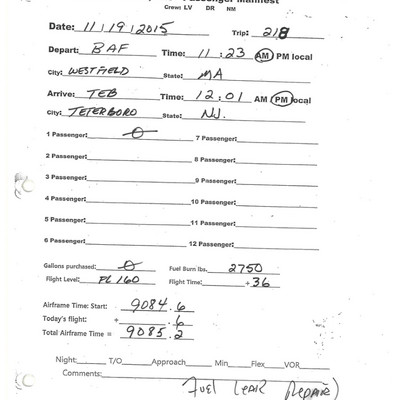 Passenger Manifest
Crew: LV DR NM
Date: 11/19/2015 Trip: 218
Depart: BAF Time: 11:23 AM PM local
City: WESTFIELD State: MA
Arrive: TEB Time: 12:01 AM PM local
City: TETERBORO State: NJ.
1 Passenger: 0 7 Passenger:
2 Passenger: 8 Passenger:
3 Passenger: 9 Passenger:
4 Passenger: 10 Passenger:
5 Passenger: 11 Passenger:
6 Passenger: 12 Passenger:
Gallons purchased: 0 Fuel Burn lbs. 2750
Flight Level: FL 160 Flight Time: +36
Airframe Time: Start: 9084.6
Today's flight: + .6
Total Airframe Time = 9085.2
Night: T/O Approach Min Flex VOR
Comments: FUEL LEAK REPAIR)